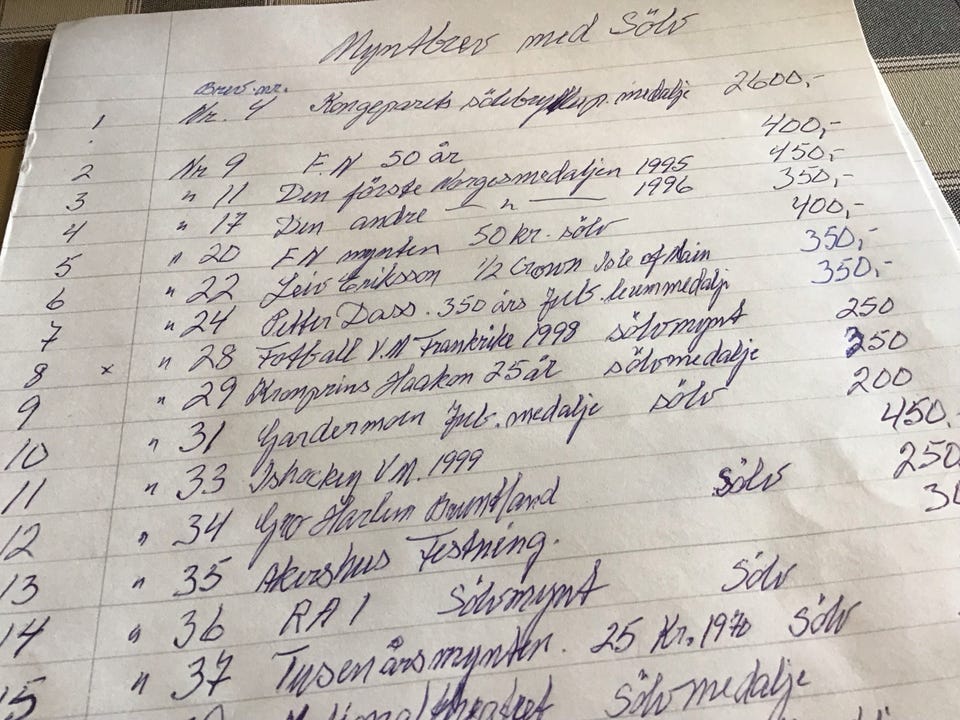 Myntbrev med Sölv
Brev.nr.
1 Nr. 4 Kongeparets sölvbryllup. medalje 2600,-
2 Nr 9 F.N 50 år 400,-
3 " 11 Den förste Norgesmedaljen 1995 450,-
4 " 17 Den andre — " — 1996 350,-
5 " 20 F.N mynten 50 kr. sölv 400,-
6 " 22 Leiv Eriksson 1/2 Crown Isle of Main 350,-
7 " 24 Petter Dass. 350 års Jub. leummedalje 350,-
8 x " 28 Fotball V.M Frankrike 1998 sölvmynt 250
9 " 29 Kronprins Haakon 25 år sölvmedalje 250
10 " 31 Gardermoen Jub. medalje sölv 200
11 " 33 Ishockey V.M. 1999 450,-
12 " 34 Gro Harlem Bruntland Sölv 250
13 " 35 Akershus Festning.
14 " 36 RA 1 Sölvmynt Sölv
15 " 37 Tusenårsmynten. 25 Kr. 1970 Sölv
Nationaltheatret Sölvmedalje